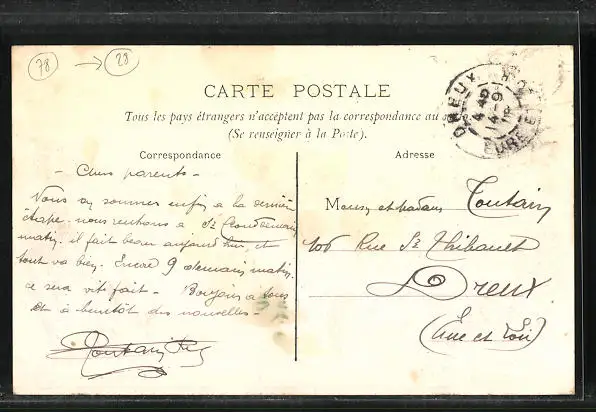 78 → 28
CARTE POSTALE
Tous les pays étrangers n'acceptent pas la correspondance au
(Se renseigner à la Poste).
Correspondance
Adresse
DREUX
EURE ET
- Chers parents -
Nous y sommes enfin, a la dernière
étape. nous rentrons a St Cloud demain
matin. il fait beau aujourd'hui, et
tout va bien. Encore 9 demain matin.
ce sera vite fait. - Bonjour a tous
et à bientôt des nouvelles -
Toutain
Monsr et Madame Toutain
106 Rue St Thibault
Dreux
(Eure et Loir)